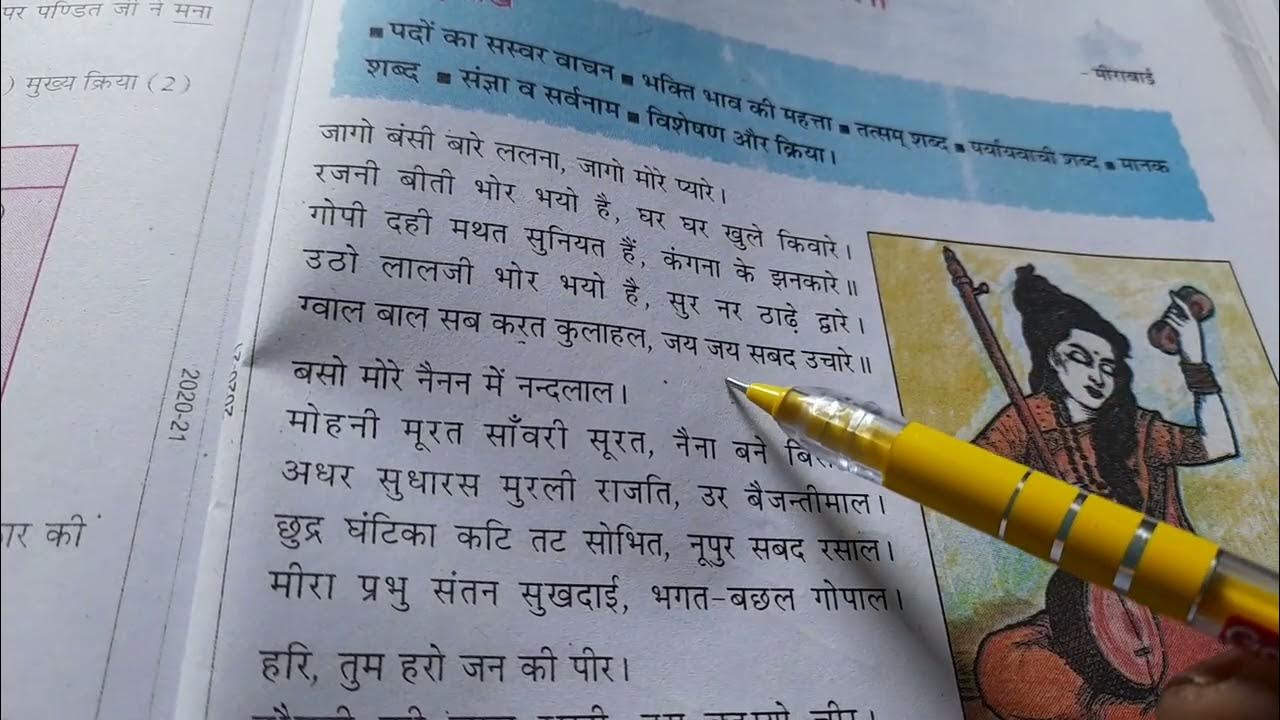 पर पण्डित जी ने मना
) मुख्य क्रिया (2)
2020-21
कार की
- मीराबाई
▪ पदों का सस्वर वाचन ▪ भक्ति भाव की महत्ता ▪ तत्सम् शब्द ▪ पर्यायवाची शब्द ▪ मानक
शब्द ▪ संज्ञा व सर्वनाम ▪ विशेषण और क्रिया।
जागो बंसी बारे ललना, जागो मोरे प्यारे।
रजनी बीती भोर भयो है, घर घर खुले किवारे।
गोपी दही मथत सुनियत हैं, कंगना के झनकारे॥
उठो लालजी भोर भयो है, सुर नर ठाढ़े द्वारे।
ग्वाल बाल सब करत कुलाहल, जय जय सबद उचारे॥
बसो मोरे नैनन में नन्दलाल।
मोहनी मूरत साँवरी सूरत, नैना बने
अधर सुधारस मुरली राजति, उर बैजन्तीमाल।
छुद्र घंटिका कटि तट सोभित, नूपुर सबद रसाल।
मीरा प्रभु संतन सुखदाई, भगत-बछल गोपाल।
हरि, तुम हरो जन की पीर।